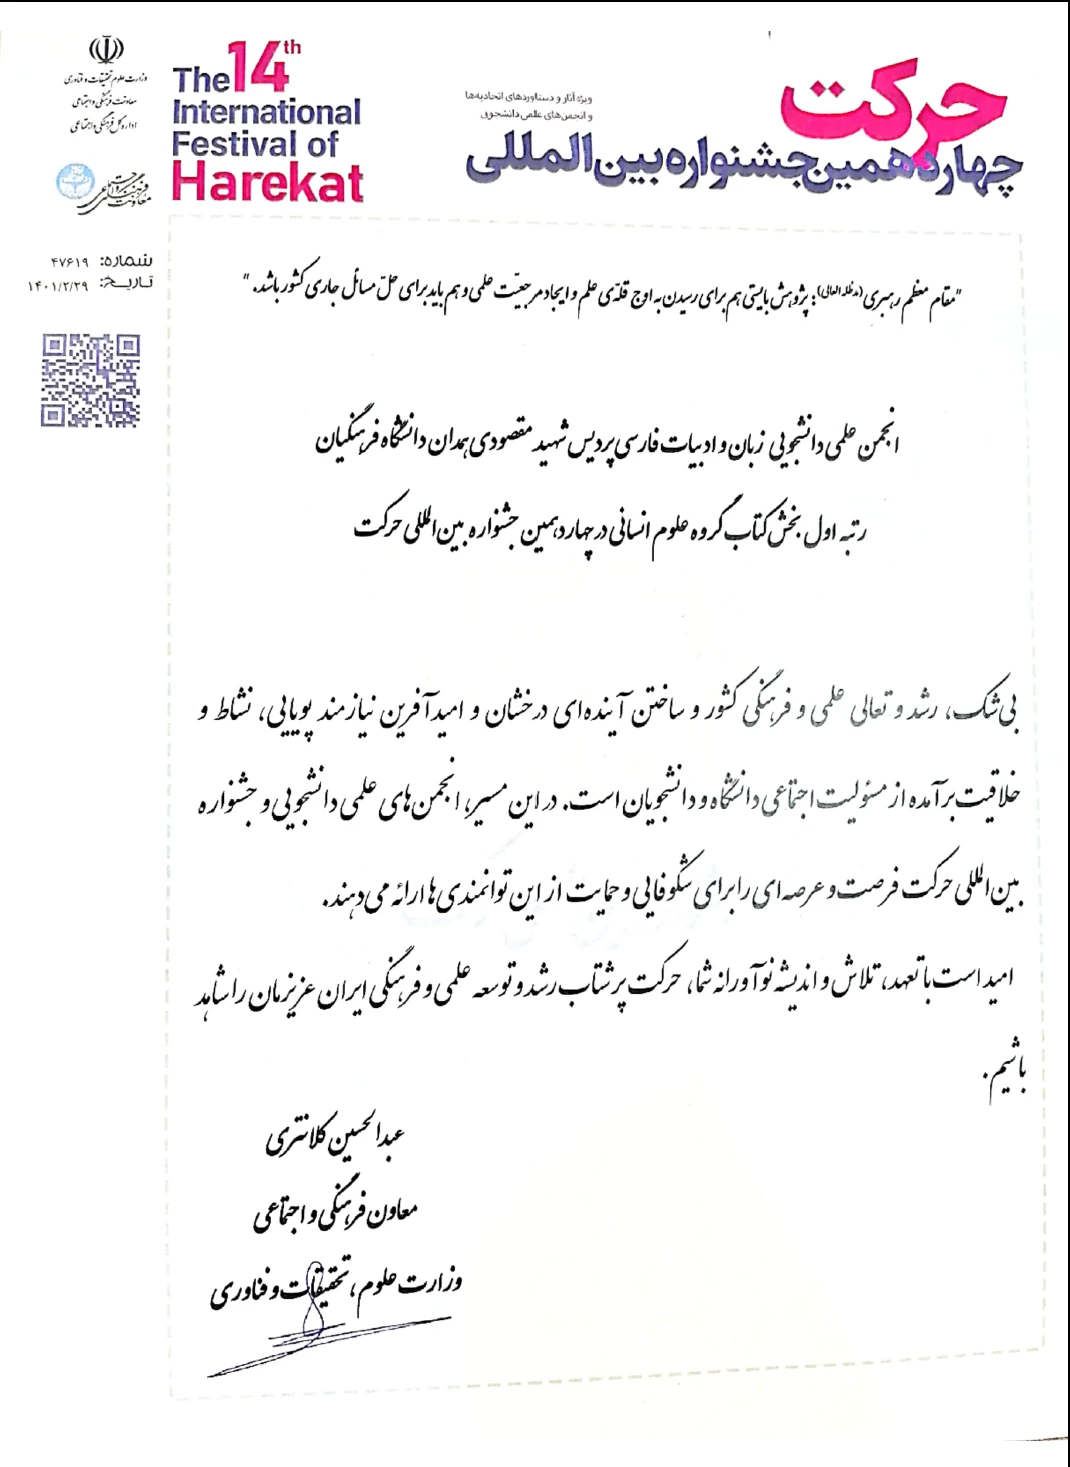 وزارت علوم تحقیقات و فناوری
معاونت فرهنگی و اجتماعی
اداره کل فرهنگی و اجتماعی
The 14th
International
Festival of
Harekat
حرکت
ویژه آثار و دستاوردهای اتحادیه‌ها
و انجمن‌های علمی دانشجویی
چهاردهمین جشنواره بین‌المللی
معاونت فرهنگی و اجتماعی
شماره: ۴۷۶۱۹
تاریخ: ۱۴۰۱/۲/۲۹
"مقام معظم رهبری (مدظله العالی): پژوهش بایستی هم برای رسیدن به اوج قله‌ی علم و ایجاد مرجعیت علمی و هم باید برای حل مسائل جاری کشور باشد."
انجمن علمی دانشجویی زبان و ادبیات فارسی پردیس شهید مقصودی همدان دانشگاه فرهنگیان
رتبه اول بخش کتاب گروه علوم انسانی در چهاردهمین جشنواره بین‌المللی حرکت
بی‌شک، رشد و تعالی علمی و فرهنگی کشور و ساختن آینده‌ای درخشان و امیدآفرین نیازمند پویایی، نشاط و
خلاقیت برآمده از مسئولیت اجتماعی دانشگاه و دانشجویان است. در این مسیر، انجمن‌های علمی دانشجویی و جشنواره
بین‌المللی حرکت فرصت و عرصه‌ای را برای شکوفایی و حمایت از این توانمندی‌ها ارائه می‌دهند.
امید است با تعهد، تلاش و اندیشه نوآورانه شما، حرکت پرشتاب رشد و توسعه علمی و فرهنگی ایران عزیزمان را شاهد
باشیم.
عبدالحسین کلانتری
معاون فرهنگی و اجتماعی
وزارت علوم، تحقیقات و فناوری